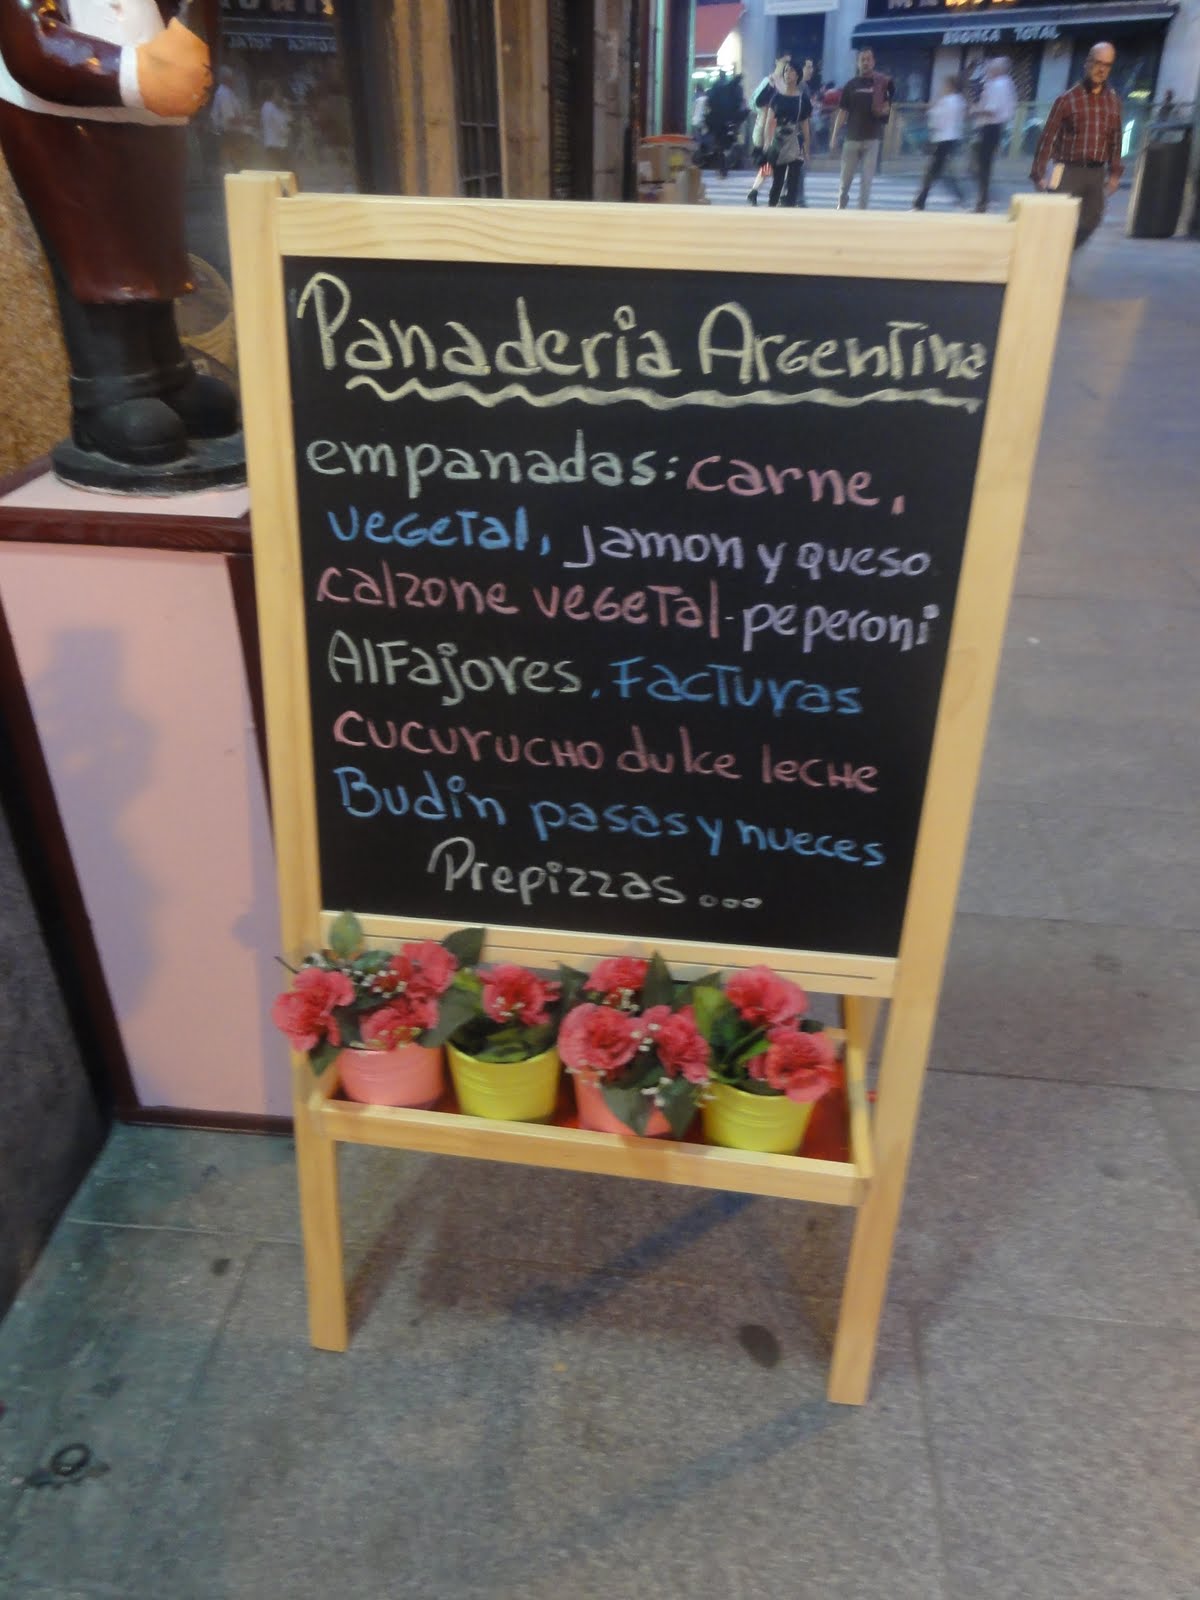 BUORCA TOTAL
Panaderia Argentina
empanadas: carne,
vegetal, jamon y queso
calzone vegetal-peperoni
Alfajores, Facturas
cucurucho dulce leche
Budin pasas y nueces
Prepizzas...